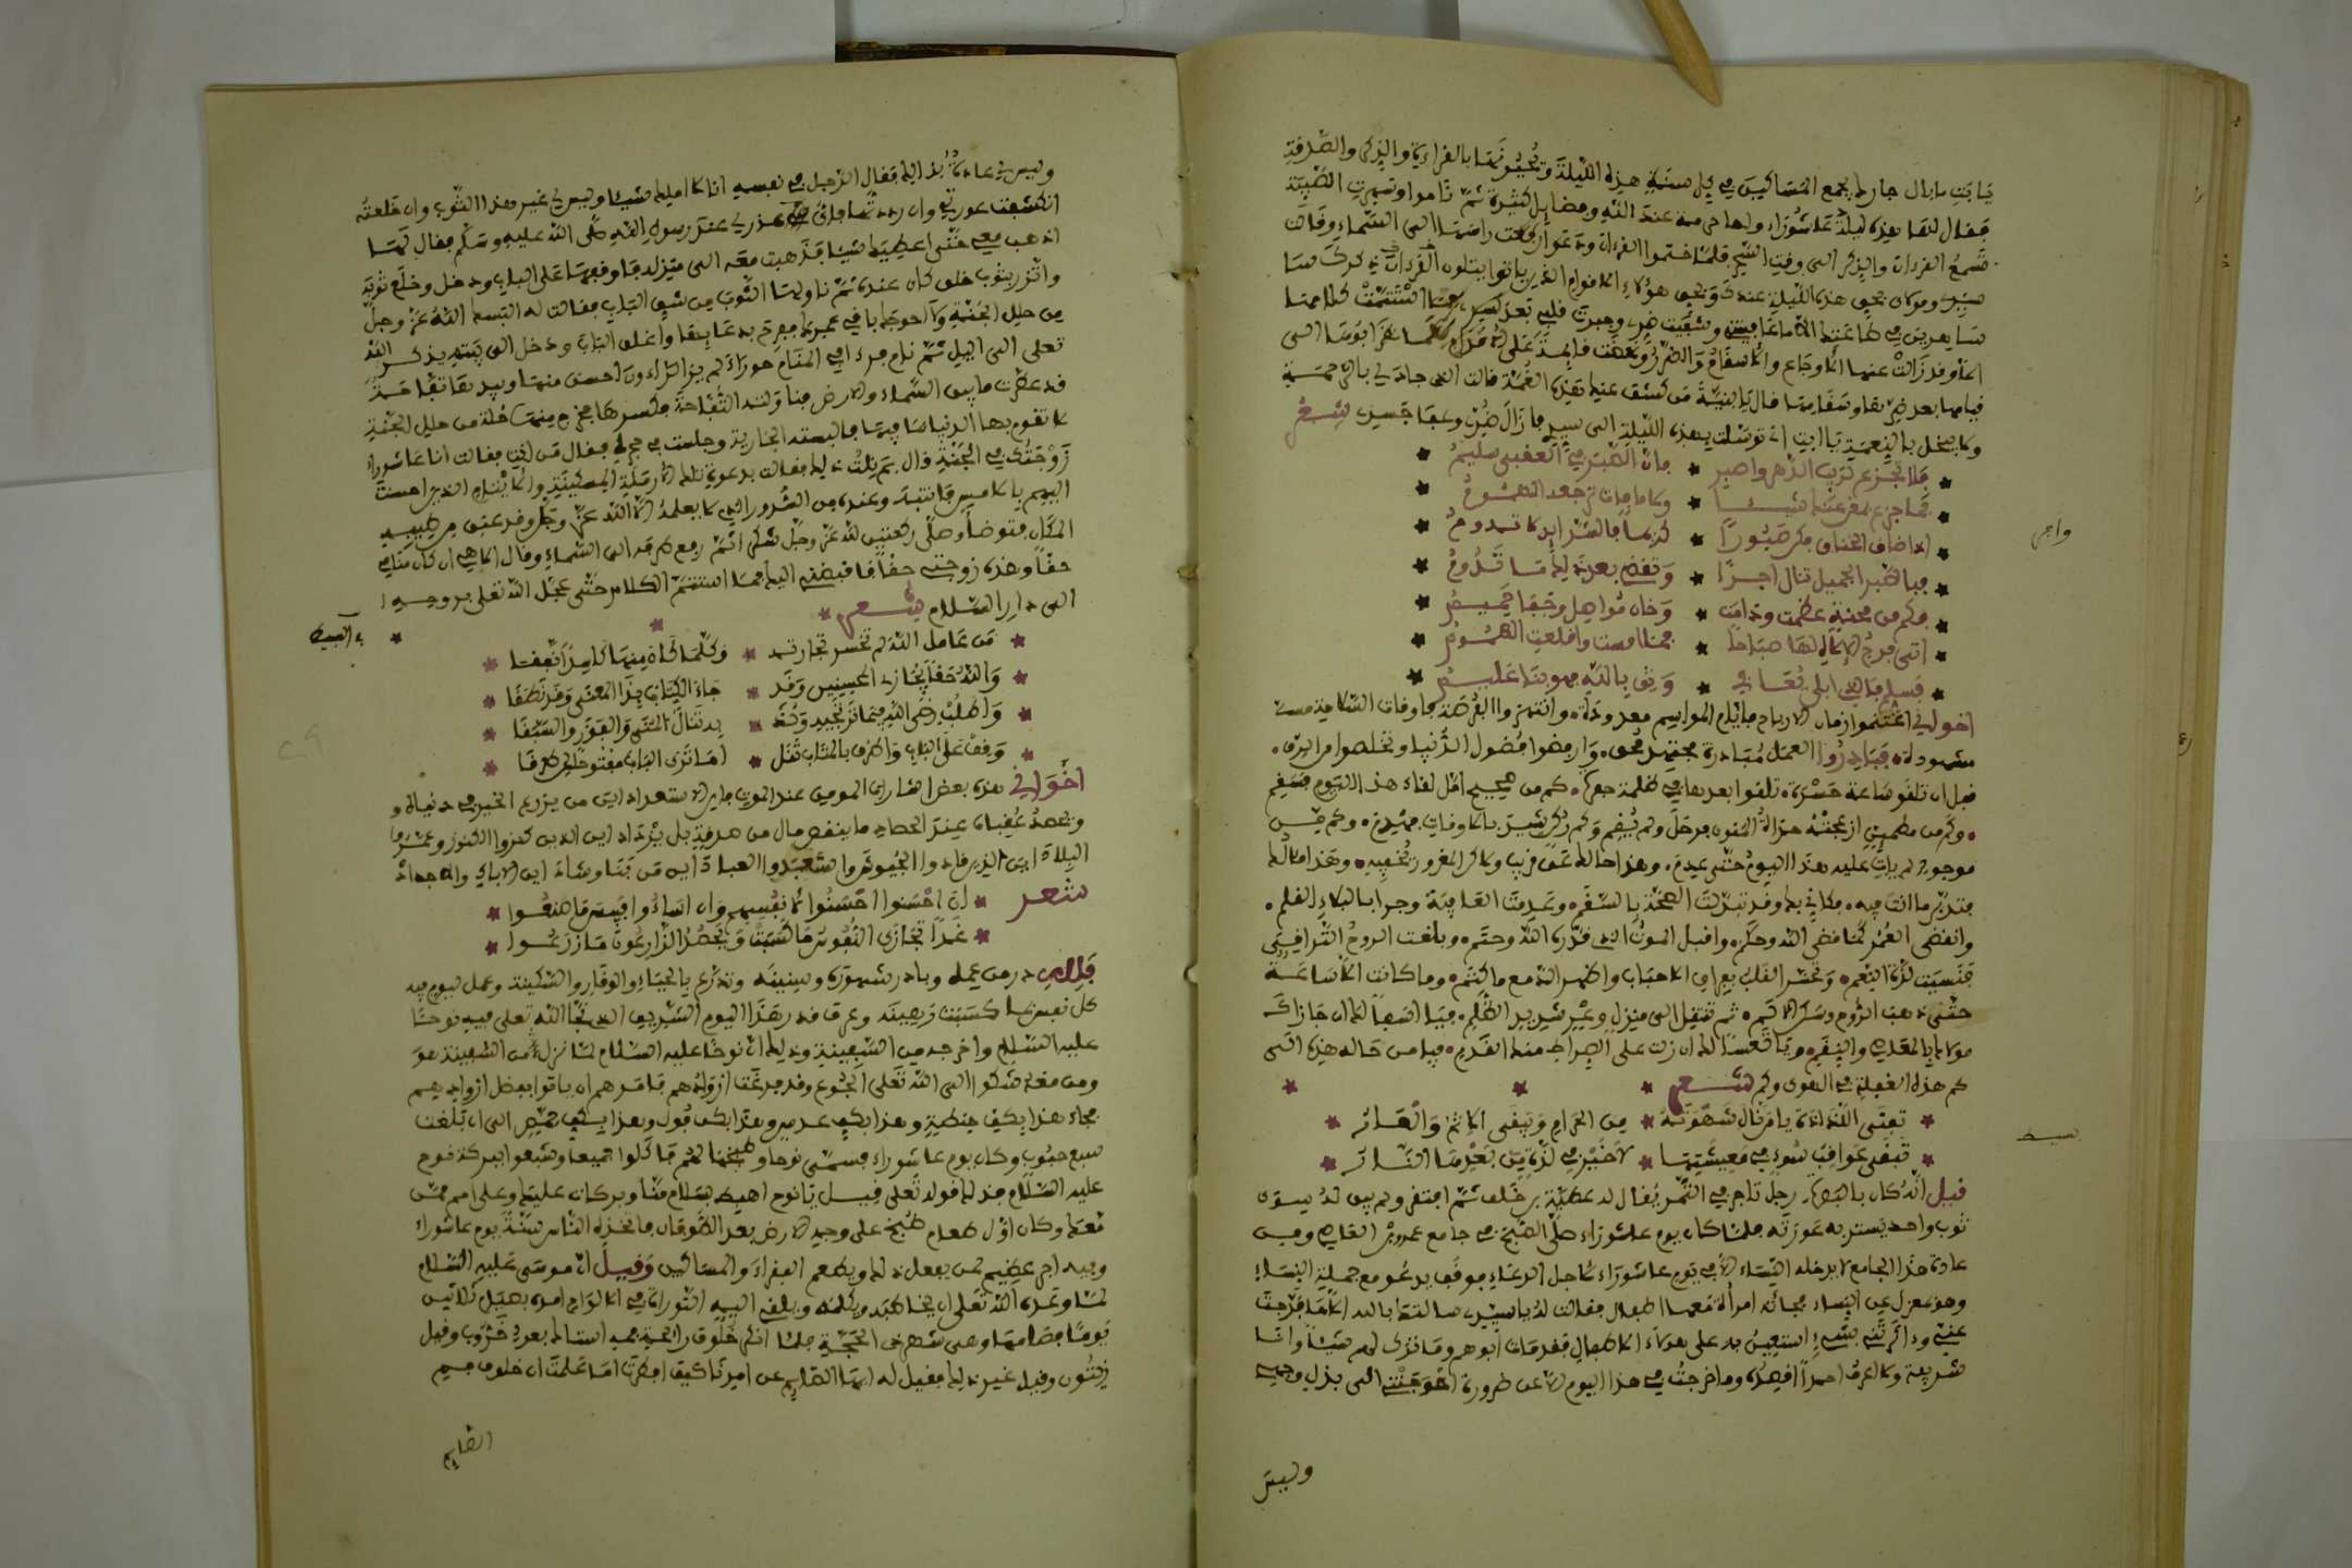 يا بنت ما بال جارك يجمع المساكين في كل سنة هذه الليلة ويحيونها بالقراءة والذكر والصدقة
فقال لها هذه ليلة عاشوراء ولها حرمة عند الله وفضايل كثيرة ثم ناموا وسهرت الصبية
تسمع القرءان والذكر الى وقت السحر فلما ختموا القرءان ودعوا رفعت راسها الى السماء وقالت
فيامها بعد ضرها وسقامها قال يا بنية من كشف عنك هذه الغمة قالت الذي جاد لي بالرحمة
وما بخل بالنعمة يا ابت اني توسلت بهذه الليلة الى سيدي فازال ضري وعفا جسدي شعر
فلا تجزع لريب الدهر واصبر * فان الصبر في العقبى سليم
فما جزع بمغن عنك شيئا * ولا ما فات ترجعه الهموم
اذا ضاق الخناق فكن صبورا * كريما فالشدايد لا تدوم
فبالصبر الجميل تنال اجرا * وتعض بعد ذلك ما تروم
فكم من محنة عظمت ودامت
اتى فرج الاله لها صباحا * فما امست واقلعت الهموم
فسلم فالذي ابلى يعافي * وثق بالله فهو بنا عليم
اخواني اغتنموا زمان الارباح فايام المواسم معدودة وانتهزوا الفرصة فاوقات السلامة
مشهودة فبادروا العمل مبادرة مجتهد محق وارفضوا فضول الدنيا وتخلصوا من الرق
قبل ان تلقو ساعة حسرة تلقوا بعدها في ظلمة حفرة كم من صحيح امل لقاء هذا اليوم فسقم
وكم من مطمين ازعجته هزاة المنون فرحل ولم يقم
موجود لم يات عليه هذا اليوم حتى عدم وهذا حالك عن قريب ولاكن المغرور
فتدبر ما انت فيه فكاني بك وقد تبدلت الصحة بالسقم وعدمت العافية وجرا بالبلاء القلم
وانقضى العمر كما قضى الله وحكم واقبل الموت الذي قدره الله وحتم وبلغت الروح التراقي
فنسيت لذة النعم وتحسر القلب بفراق الاحباب واظهر الدمع ما كتم وما كانت الا ساعة
حتى ذهب الروح وسكن الالم ثم تنتقل الى منزل وعر شديد الظلم فيا اسفا لك ان جازاك
مولاك بالعذاب والنقم ويا تعسا لك ان زلت على الصراط منك القدم فيا من حاله هذه الى
كم هذه الغفلة في الهوى وكم شعر
تفنى اللذاذة يا من نال شهوته * من الحرام ويبقى الاثم والعار
تبقى عواقب سوء في مغبتها * لا خير في لذة من بعدها النار
قيل انه كان بالبصرة رجل تاجر في التمر يقال له عطية بن خلف ثم افتقر ولم يبق له سوى
ثوب واحد يستر به عورته فلما كان يوم عاشوراء صلى الصبح في جامع عمرو بن العاص ومن
عادة هذا الجامع لا يدخله النساء الا في يوم عاشوراء لاجل الدعاء فوقف يدعو مع جملة النساء
وهو بمعزل عن النساء فجاءته امرأة معها اطفال فقالت له يا سيدي سالتك بالله الا ما فرجت
عني وداثرتني بشيء استعين به على هولاء الاطفال فقد مات ابوهم وما ترك لهم شيئا وانا
شريفة ولا اعرف احدا اقصده وما خرجت في هذا اليوم الا عن ضرورة احوجتني الى بذل وجهي
وليس
وافر
بسيط
وليس لي عادة بذلك فقال الرجل في نفسه انا لا املك شيئا وليس لي غير هذا الثوب وان خلعته
انكشفت عورتي وان رددتها فاي عذر لي عند رسول الله صلى الله عليه وسلم فقال لها
اذهب معي حتى اعطيك شيئا فذهبت معه الى منزله فاوقفها على الباب ودخل وخلع ثوبه
واتزر بثوب خلق كان عنده ثم ناولها الثوب من شق الباب فقالت له البسك الله عز وجل
من حلل الجنة ولا احوجك باقي عمرك ففرح بدعايها واغلق الباب ودخل الى بيته يذكر الله
تعلى الى الليل ثم نام فرءا في المنام حوراء لم ير الراءون احسن منها وبيدها تفاحة
قد عطرت ما بين السماء والارض فناولته التفاحة فكسرها فخرج منها حلة من حلل الجنة
لا تقوم بها الدنيا وما فيها فالبسته الجارية وجلست في حجره فقال من انت فقالت انا عاشوراء
زوجتك في الجنة قال بم نلت ذلك فقالت بدعوة تلك الارملة المسكينة والايتام الذين احسنت
اليهم بالامس فانتبه وعنده من السرور الذي لا يعلمه الا الله عز وجل وقد عبق من طيبه
المكان فتوضأ وصلى ركعتين لله عز وجل شكرا ثم رفع طرفه الى السماء وقال الاهي ان كان منامي
حقا وهذه زوجتي حقا فاقبضني اليك فما استتم الكلام حتى عجل الله تعلى بروحه
الى دار السلام شعر
من عامل الله لم تخسر تجارته
والله حقا يجازي المحسنين وقد * جاء الكتاب بذا المعنى وقد نطقا
وقف على الباب والزم بالمتاب تنل * اما ترى الباب مفتوحا لمن طرقا
اخواني هذه بعض اشارات المومن عند الموت فاين الاستعداد اين من يزرع الخير في دنياه و
ويحمد عقباه عند الحصاد ما ينقص مال من صدقة بل يزداد اين الذين كنزوا الكنوز وعمروا
البلاد اين الذين قادوا الجيوش واستعبدوا العباد اين من بنا وشاد اين الاباء والاجداد
شعر * ان احسنوا احسنوا لانفسهم وان اساءوا فبيس ما صنعوا *
* غدا تجازى النفوس ما كسبت ويحصد الزارعون ما زرعوا *
كل نفس بما كسبت رهينه وعرف قدر هذا اليوم الشريف الذي نجا الله تعلى فيه نوحا
عليه السلام واخرجه من السفينة وذلك ان نوحا عليه السلام لما نزل من السفينة هو
ومن معه شكوا الى الله تعلى الجوع وقد فرغت ازوادهم فامرهم ان ياتوا بفضل ازوادهم
فجاء هذا بكف حنطة وهذا بكف عدس وهذا بكف فول وهذا بكف حمص الى ان بلغت
سبع حبوب وكان يوم عاشوراء فسمى نوحا وطبخها لهم فاكلوا جميعا وشبعوا ببركة نوح
عليه السلام فذلك قوله تعلى قيل يا نوح اهبط بسلام منا وبركات عليك وعلى امم ممن
معك وكان اول طعام طبخ على وجه الارض بعد الطوفان فاتخذه الناس سنة يوم عاشوراء
وفيه اجر عظيم لمن يفعل ذلك ويطعم الفقراء والمساكين وقيل ان موسى عليه السلام
لما وعده الله تعلى ان يخاطبه ويكلمه ويلقي اليه التوراة في الالواح امره بصيام ثلاثين
يوما فصامها وهي شهر ذي الحجة فلما انكر خلوف رايحة فمه استاك بعود خروب وقيل
زيتون وقيل غير ذلك فقيل له ايها الصايم عن امرنا كيف افطرت اما علمت ان خلوف فم
الصايم
بحر البسيط
٢٩